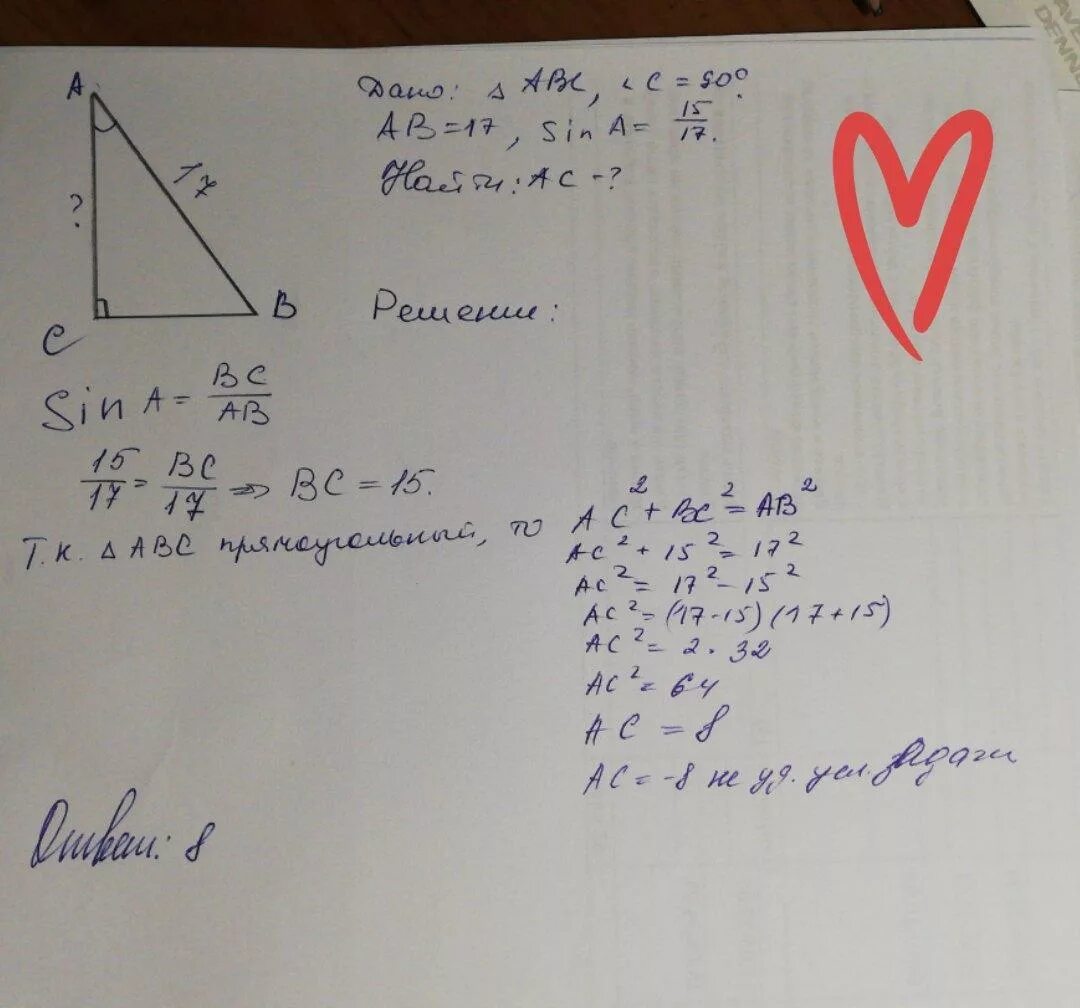 AVE
DENN
A
17
?
C
B
Дано: △ ABC, ∠C = 90°.
AB=17, sin A= 15/17.
Найти: AC-?
Решение:
Sin A = BC/AB
15/17 = BC/17 => BC = 15.
Т.к. △ ABC прямоугольный, то AC² + BC² = AB²
AC² + 15² = 17²
AC² = 17² - 15²
AC² = (17-15)(17+15)
AC² = 2 · 32
AC² = 64
AC = 8
AC = -8 не уд. усл. задачи
Ответ: 8